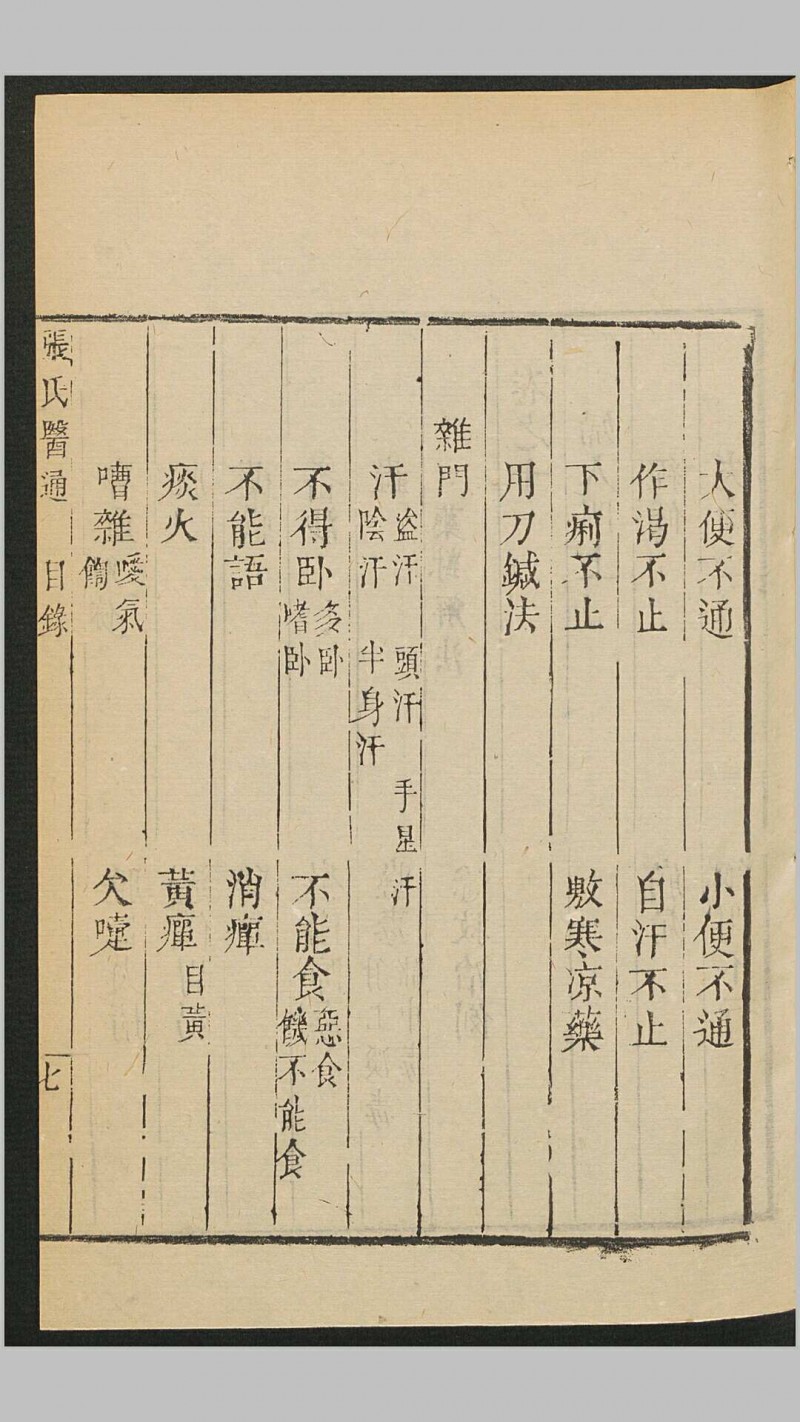 大便不通　小便不通
作渴不止　自汗不止
下痢不止　敷寒凉藥
用刀鍼法
雜門
汗　盜汗　頭汗　手足汗　陰汗　半身汗
不得卧　多卧　嗜卧　不能食　惡食　饑不能食
不能語　消癉
痰火　黃癉　目黃
嘈雜　噯氣　欠嚏
張氏醫通　目錄　七